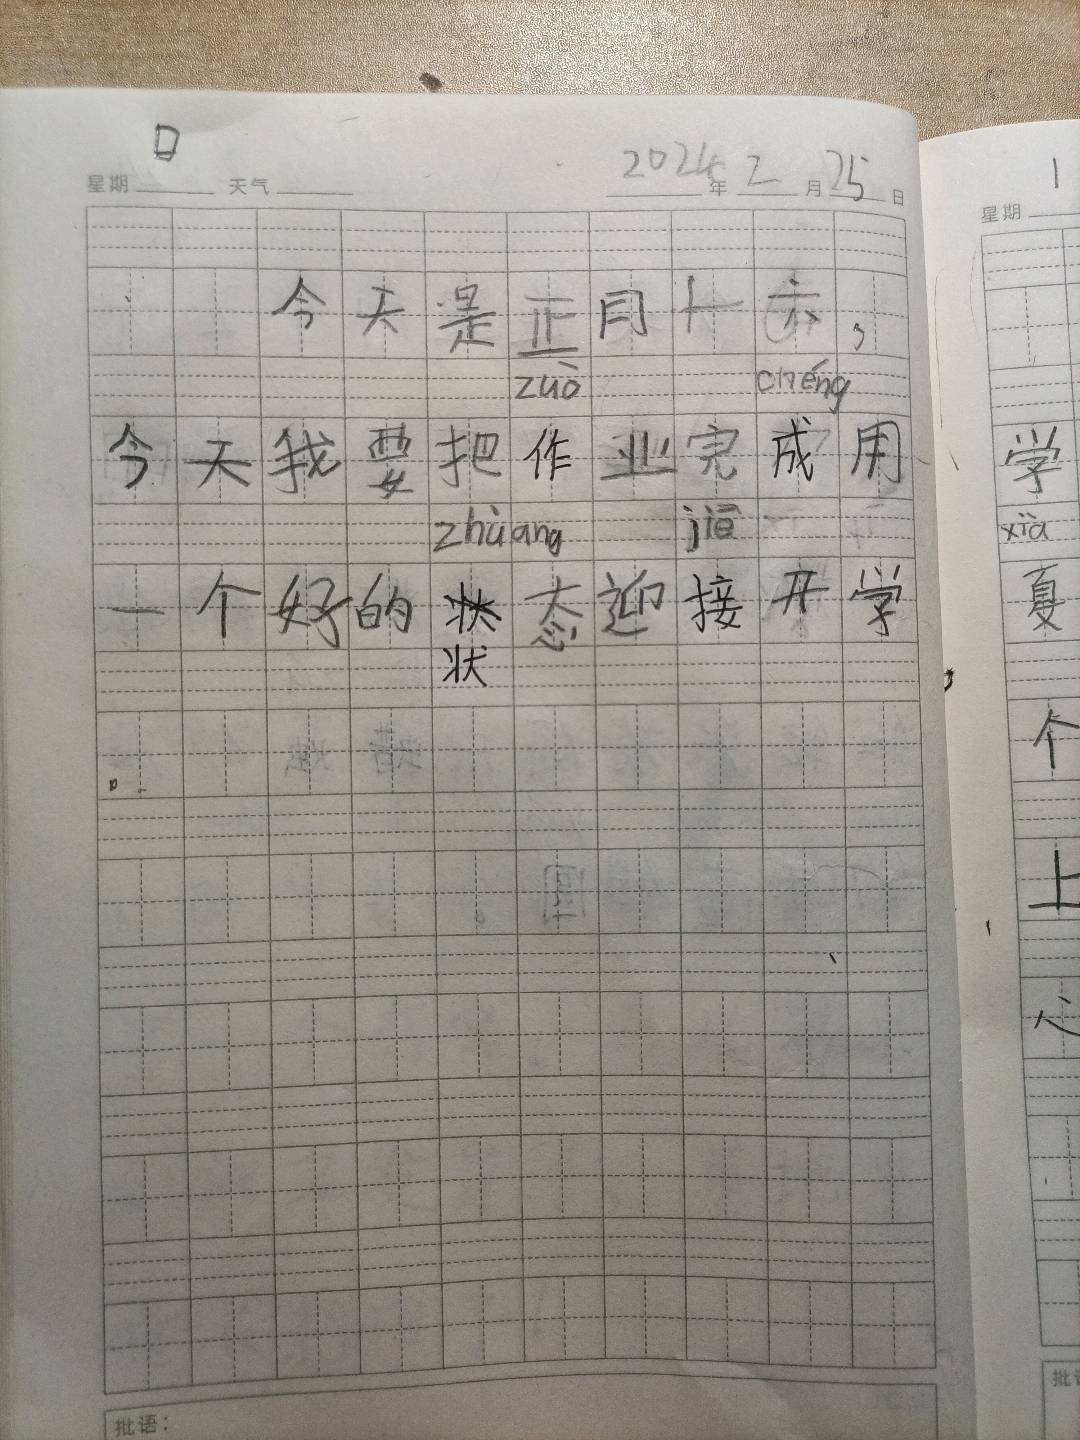 星期 日 天气 2024 年 2 月 25 日
今天是正月十六，
zuò chéng
今天我要把作业完成用
zhuàng jiē
一个好的状态迎接开学
状
。
批语：
1
星期
学
xià
夏
个
上
心
批语